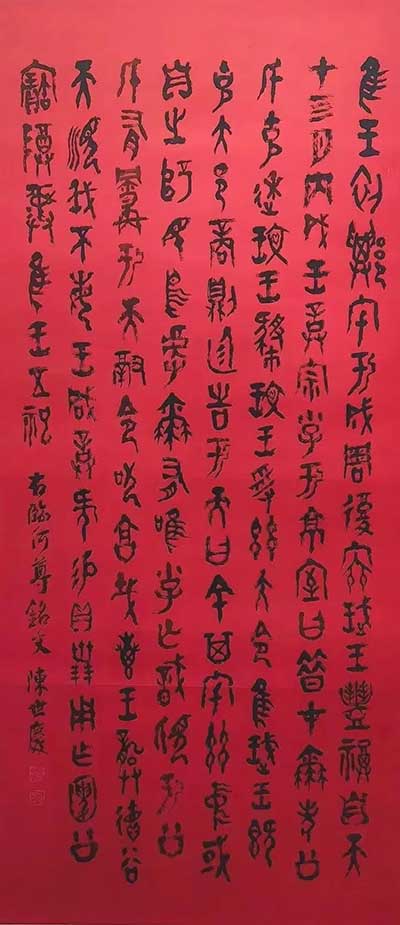 隹王初遷宅于成周復禀珷王豐福自天
才四月丙戌王誥宗小子于京室曰昔才爾考公
氏克逨玟王肆玟王受茲大令隹珷王既
克大邑商則廷告于天曰余其宅茲中或
自之辟民烏虖爾有唯小子亡識視于公
氏有爵于天徹令敬享哉叀王龏德谷
天順我不每王咸誥何易貝卅朋用乍庾公
寶尊彝隹王五祀 右臨何尊銘文 陳世慶